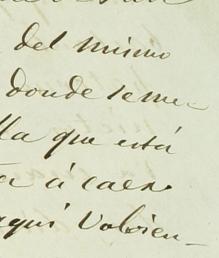 del mismo
donde se me
lla que está
a caer
aquí volvien-